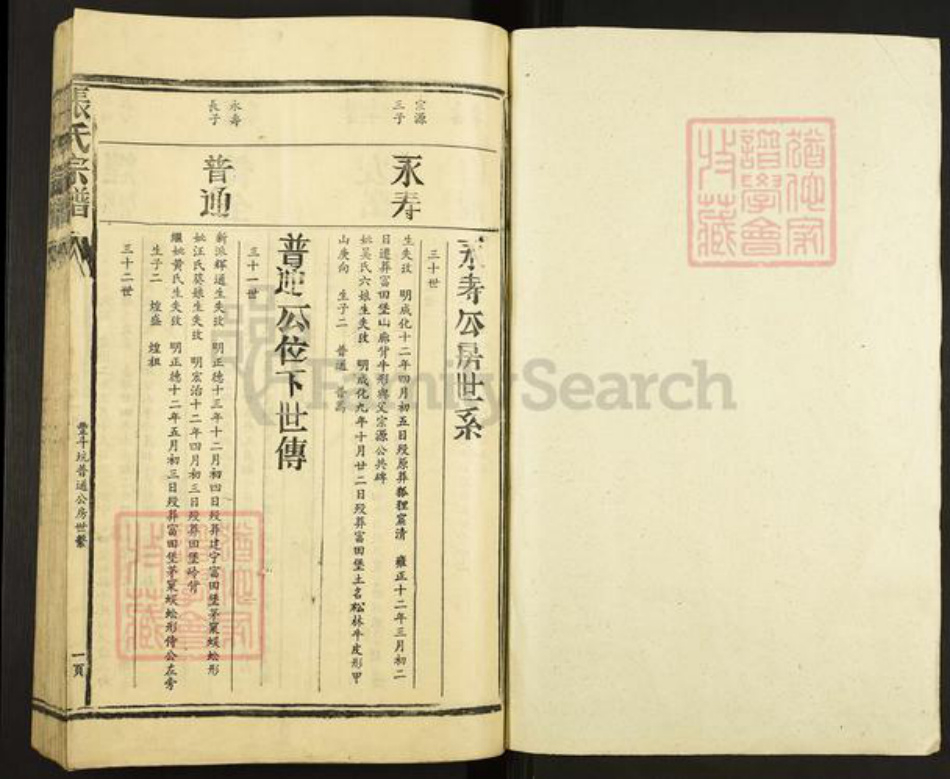 永壽公房世系
宗源
三子
永寿
三十世
生失攷　明成化十二年四月初五日殁原葬狐狸窠清　雍正十二年三月初二
日遷葬富田堡山廟背牛形與父宗源公共碑
妣吴氏六娘生失攷　明成化九年十月廿二日殁葬富田堡土名松林牛皮形甲
山庚向　生子二　普通　普萬
普通公位下世傳
永壽
長子
普通
三十一世
新派輝通生失攷　明正德十三年十二月初四日殁葬建宁富田堡茅窠蜈蚣形
妣汪氏葵娘生失攷　明宏治十二年四月初三日殁葬田堡岭背
繼妣黄氏生失攷　明正德十二年五月初三日殁葬富田堡茅窠蜈蚣形侍公左旁
生子二　煌盛　煌祖
三十二世
張氏宗譜
豐斗坑普通公房世繫
一頁
FamilySearch
猶他家
譜學會
收藏
猶他家
譜學會
收藏